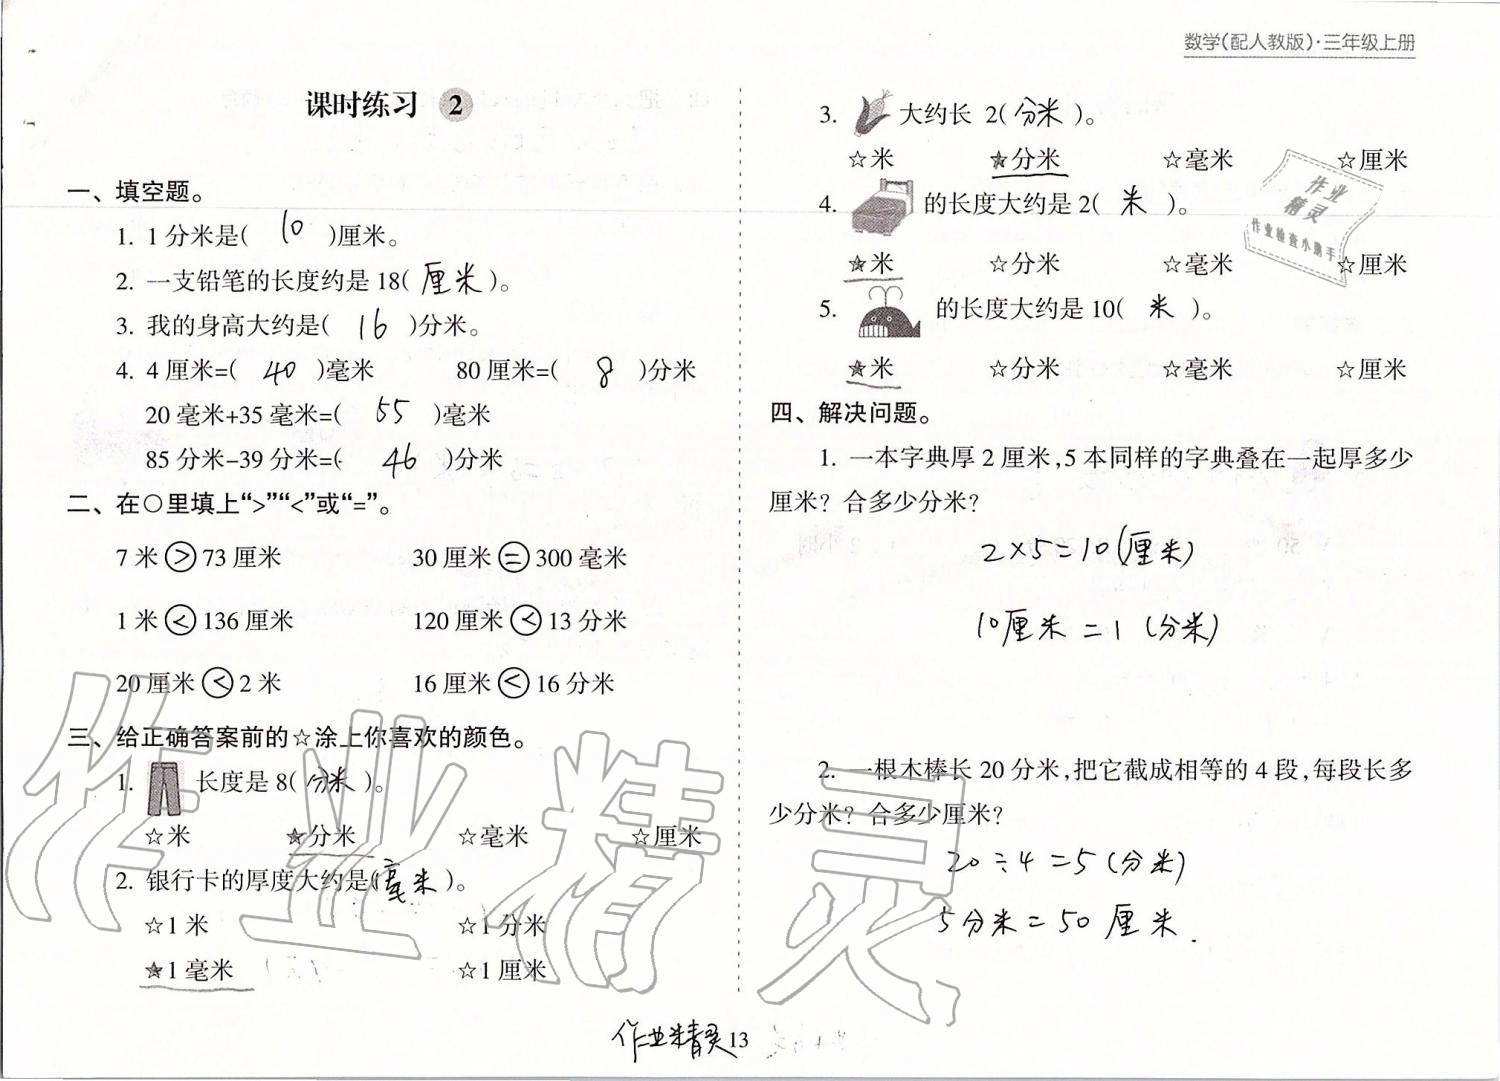 数学(配人教版)·三年级上册
课时练习 2
一、填空题。
1. 1分米是( 10 )厘米。
2. 一支铅笔的长度约是18( 厘米 )。
3. 我的身高大约是( 16 )分米。
4. 4厘米=( 40 )毫米 80厘米=( 8 )分米
20毫米+35毫米=( 55 )毫米
85分米-39分米=( 46 )分米
二、在○里填上“>”“<”或“=”。
7米 > 73厘米 30厘米 = 300毫米
1米 < 136厘米 120厘米 < 13分米
20厘米 < 2米 16厘米 < 16分米
三、给正确答案前的☆涂上你喜欢的颜色。
1. 长度是8( 分米 )。
☆米 ★分米 ☆毫米 ☆厘米
2. 银行卡的厚度大约是( 毫米 )。
☆1米 ☆1分米
★1毫米 ☆1厘米
3. 大约长 2( 分米 )。
☆米 ★分米 ☆毫米 ☆厘米
4. 的长度大约是2( 米 )。
★米 ☆分米 ☆毫米 ☆厘米
5. 的长度大约是10( 米 )。
★米 ☆分米 ☆毫米 ☆厘米
四、解决问题。
1. 一本字典厚2厘米,5本同样的字典叠在一起厚多少
厘米? 合多少分米?
2×5=10(厘米)
10厘米=1(分米)
2. 一根木棒长20分米,把它截成相等的4段,每段长多
少分米? 合多少厘米?
20÷4=5(分米)
5分米=50厘米.
作业精灵
作业
精灵
作业检查小助手
作业精灵 13